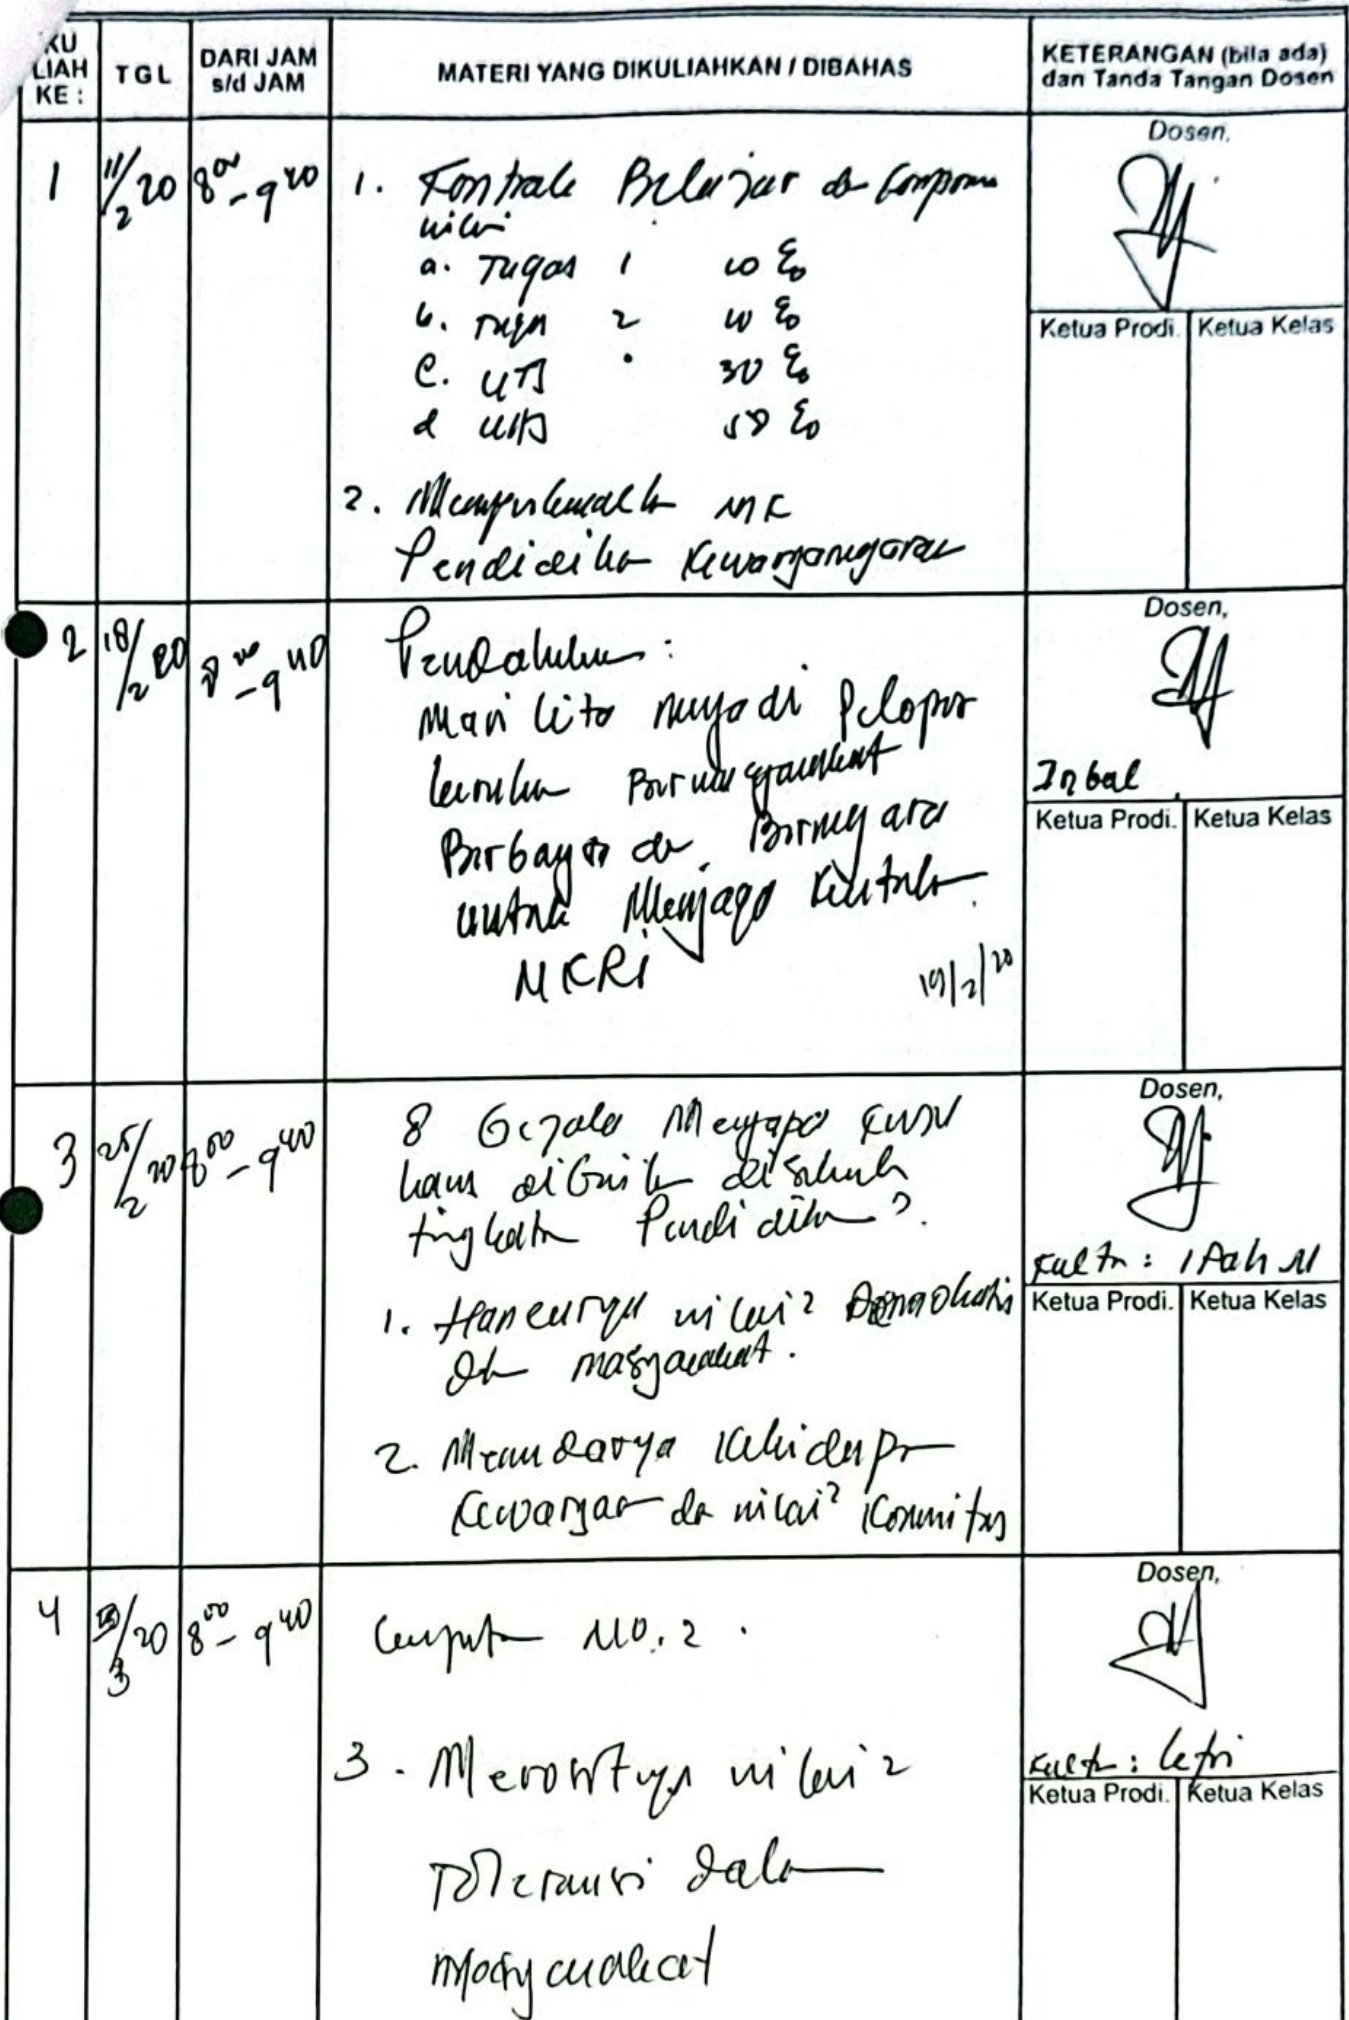 KU
LIAH
KE :
TGL
DARI JAM
s/d JAM
MATERI YANG DIKULIAHKAN / DIBAHAS
KETERANGAN (bila ada)
dan Tanda Tangan Dosen
1
11/2 20
8 00 - 9 40
1. Kontrak Belajar dan
nilai
a. Tugas 1 10 %
b. Tugas 2 10 %
c. UTS 30 %
d UAS 50 %
2. MK
Pendidikan Kewarganegaraan
Dosen,
Ketua Prodi. Ketua Kelas
2
18/2 20
8 00 - 9 40
Pendahuluan :
Mari kita menjadi Pelopor
Bermasyarakat
Berbangsa dan Bernegara
untuk Menjaga Keutuhan
NKRI
19/2/20
Dosen,
Ketua Prodi. Ketua Kelas
3
25/2 20
8 00 - 9 40
8 Gejala Mengapa
harus di
tingkatan Pendidikan ?
1. Hancurnya nilai2 Demokratis
dlm masyarakat.
2. Memudarnya Kehidupan
Kewargaan dan nilai2 Komunitas
Dosen,
Ketua Prodi. Ketua Kelas
4
/3 20
8 00 - 9 40
No. 2 .
3. Merosotnya nilai2
Toleransi dalam
Masyarakat
Dosen,
Ketua Prodi. Ketua Kelas